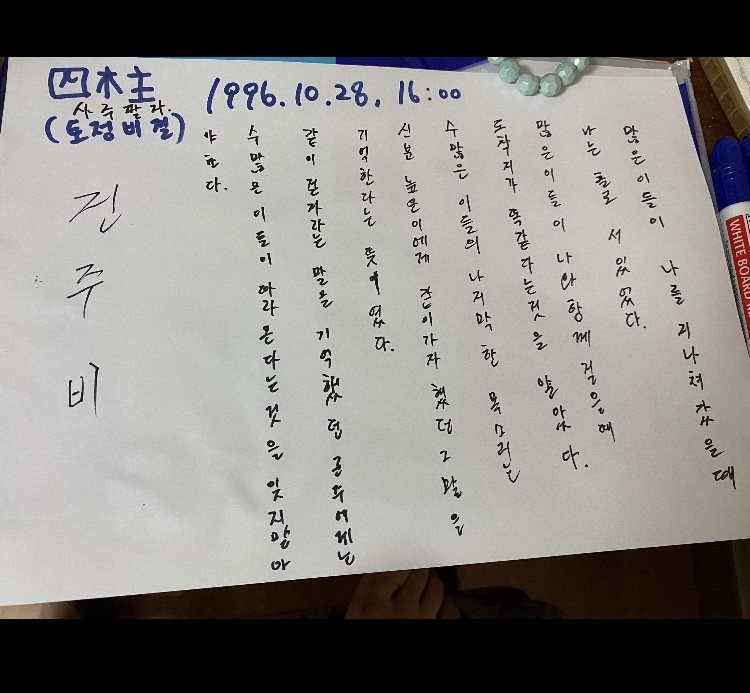 四柱 1996.10.28. 16:00
사주팔자.
(토정비결)
많은이들이 나를 지나쳐갔을때
나는 홀로 서 있었다.
많은이들이 나와 함께 걸을때
도착지가 똑같다는것을 알았다.
수많은 이들의 나지막한 목소리는
신분 높은이에게 같이가자 했던 그 말을
기억한다라는 뜻이였다.
같이 걷자라는 말을 기억했던 공주에게는
수많은 이들이 따라온다는 것을 잊지말아
야 한다.
진주비
WHITE BOARD